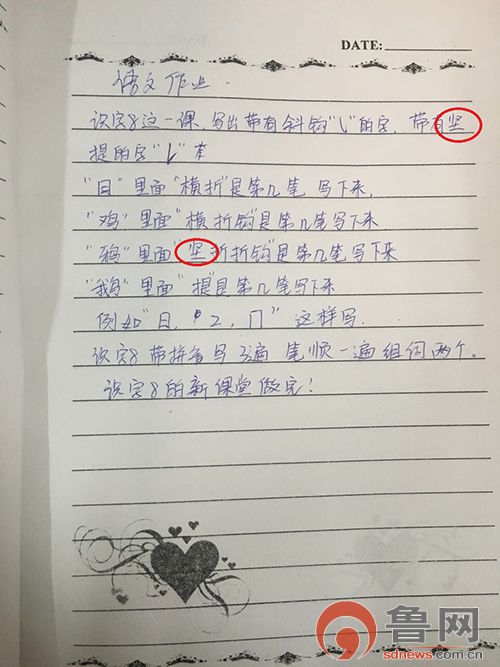 DATE:
语文作业.
识字8这一课,写出带有斜钩"㇂"的字,带有坚
提的字"𠄌"有
"日"里面"横折"是第几笔 写下来,
"鸡"里面"横折钩"是第几笔写下来
"鸦"里面"坚折折钩"是第几笔写下来
"鹅"里面"提"是第几笔写下来
例如"日, 2, 冂"这样写.
识字8带拼音写3遍 笔顺一遍组词两个。
识字8的新课堂做完!
鲁网
sdnews.com.cn